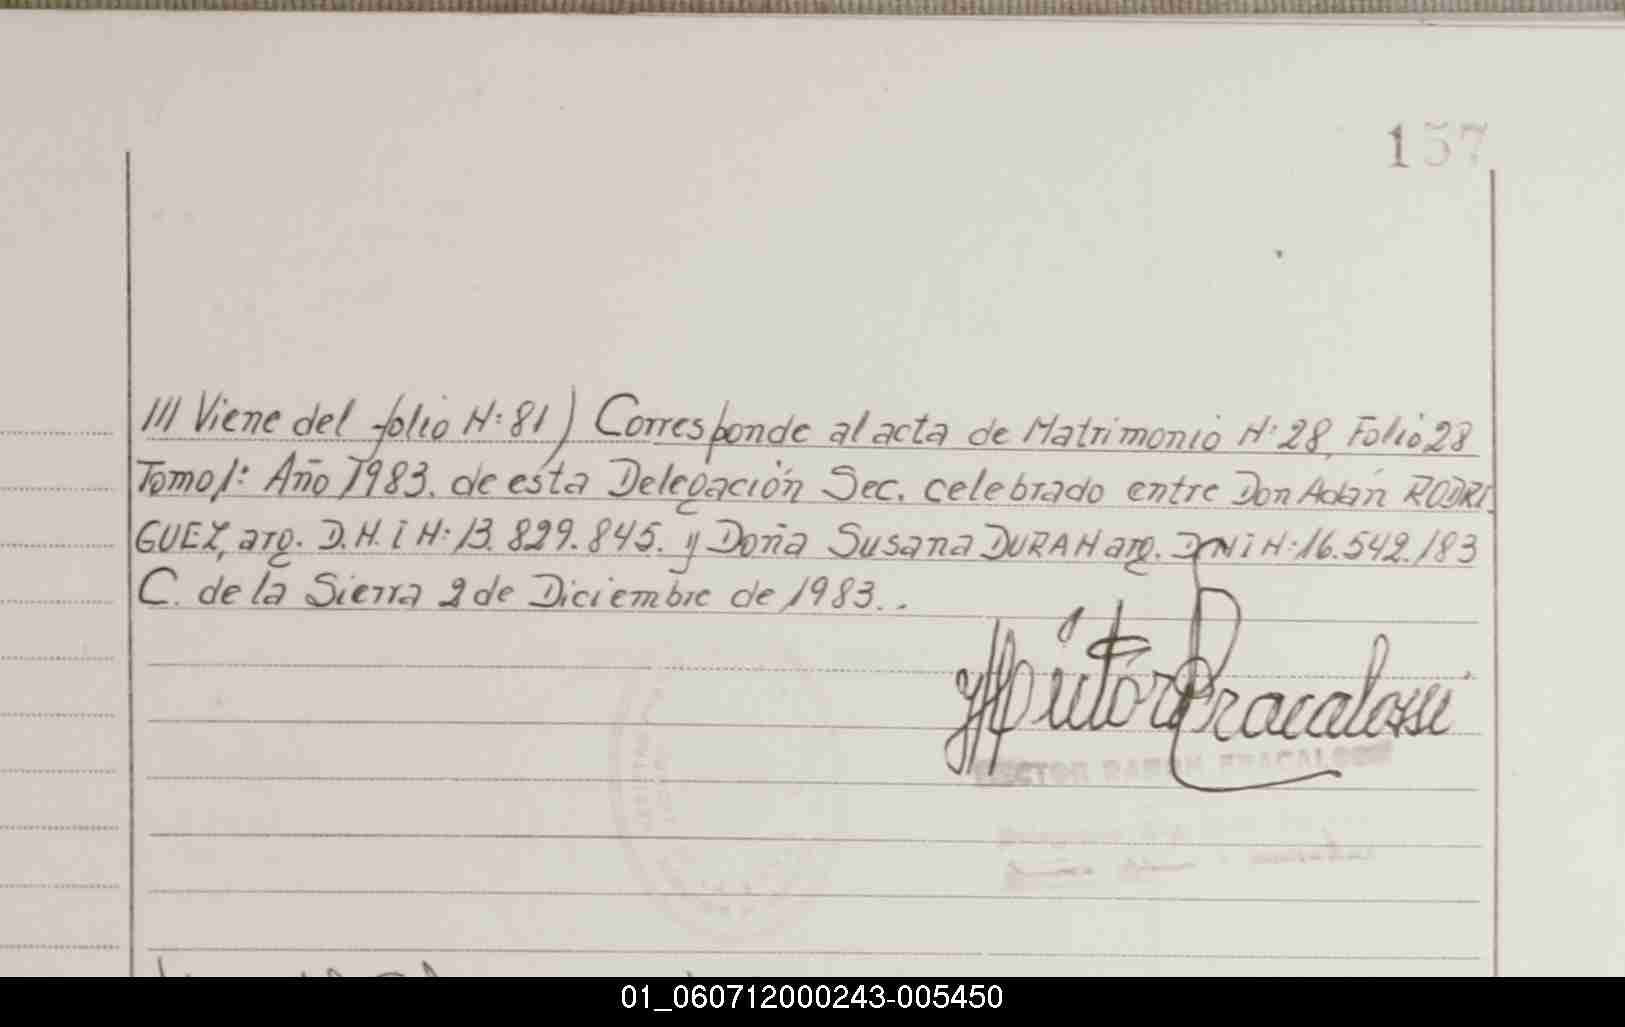 157
/// Viene del folio N: 81) Corresponde al acta de Matrimonio N: 28, Folio 28
Tomo 1: Año 1983. de esta Delegación Sec. celebrado entre Don Adán RODRI
GUEZ, arg. D.N.i N: 13.829.845. y Doña Susana DURAN arg. DNi N: 16.542.183
C. de la Sierra 2 de Diciembre de 1983..
HECTOR RAMON FRACALOSSI
01_060712000243-005450